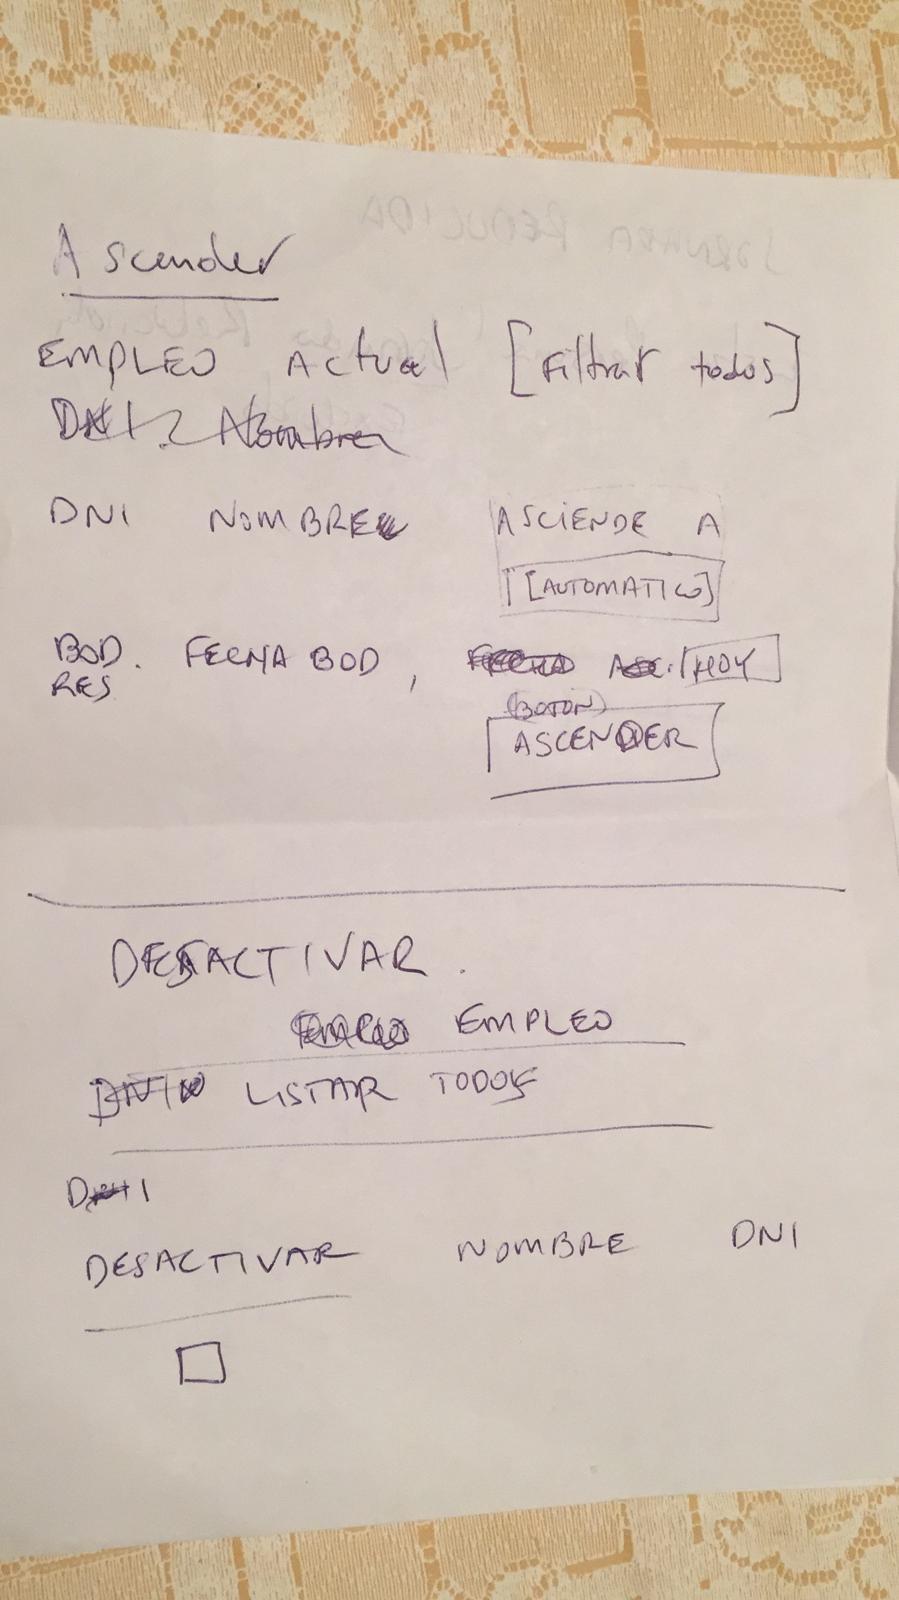 Ascender
EMPLEO Actual [Filtrar todos]
DNI Nombre
DNI NOMBRE ASCIENDE A
[AUTOMATICO]
BOD. FECHA BOD, ASC. HOY
RES
(BOTON)
ASCENDER
DESACTIVAR.
EMPLEO
LISTAR TODOS
DNI
DESACTIVAR NOMBRE DNI